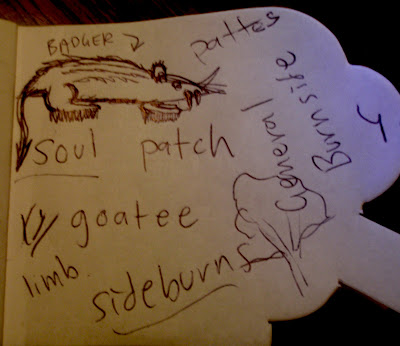 BADGER
pattes
General
Burnside
soul patch
goatee
limb.
sideburns